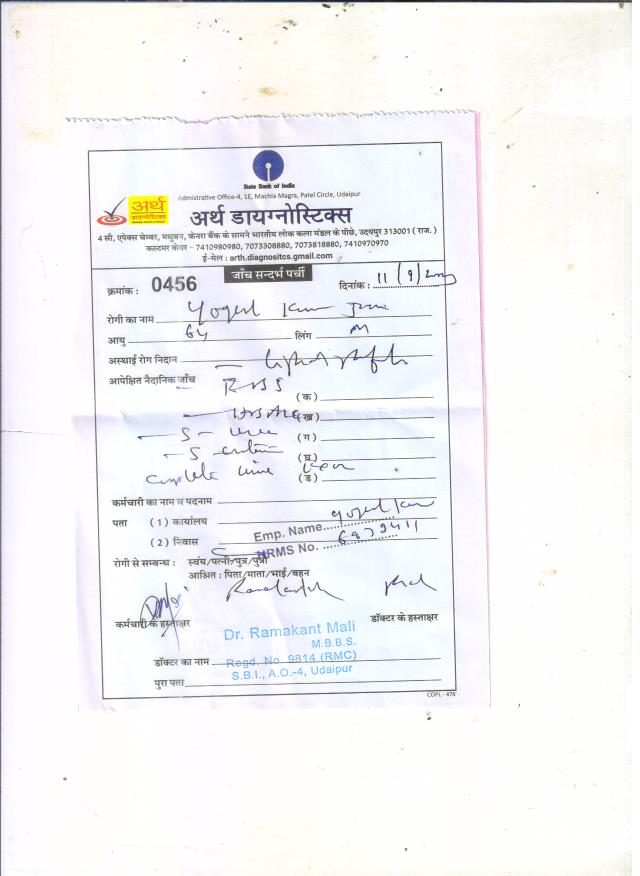 State Bank of India
Admistrative Office-4, 1E, Machla Magra, Patel Circle, Udaipur
अर्थ
डायग्नोस्टिक्स
अर्थ डायग्नोस्टिक्स
4 सी, एपेक्स चेम्बर, मधुबन, केनरा बैंक के सामने भारतीय लोक कला मंडल के पीछे, उदयपुर 313001 ( राज. )
कस्टमर केयर - 7410980980, 7073308880, 7073818880, 7410970970
ई-मेल : arth.diagnositcs.gmail.com
जाँच सन्दर्भ पर्ची
क्रमांक : 0456 दिनांक : 11/9/
रोगी का नाम Yogesh Kumar
आयु 64 लिंग M
अस्थाई रोग निदान
आपेक्षित नैदानिक जाँच RBS
(क)
(ख)
S - Urea (ग)
S - (घ)
Complete Urine (ड)
कर्मचारी का नाम व पदनाम
पता (1) कार्यालय
Emp. Name Yogesh Kumar
(2) निवास
HRMS No. 6873411
रोगी से सम्बन्ध : स्वंय/पत्नी/पुत्र/पुत्री
आश्रित : पिता/माता/भाई/बहन
कर्मचारी के हस्ताक्षर डॉक्टर के हस्ताक्षर
Dr. Ramakant Mali
M.B.B.S.
डॉक्टर का नाम Regd. No. 9814 (RMC)
S.B.I., A.O.-4, Udaipur
पुरा पता
CDPL - 476